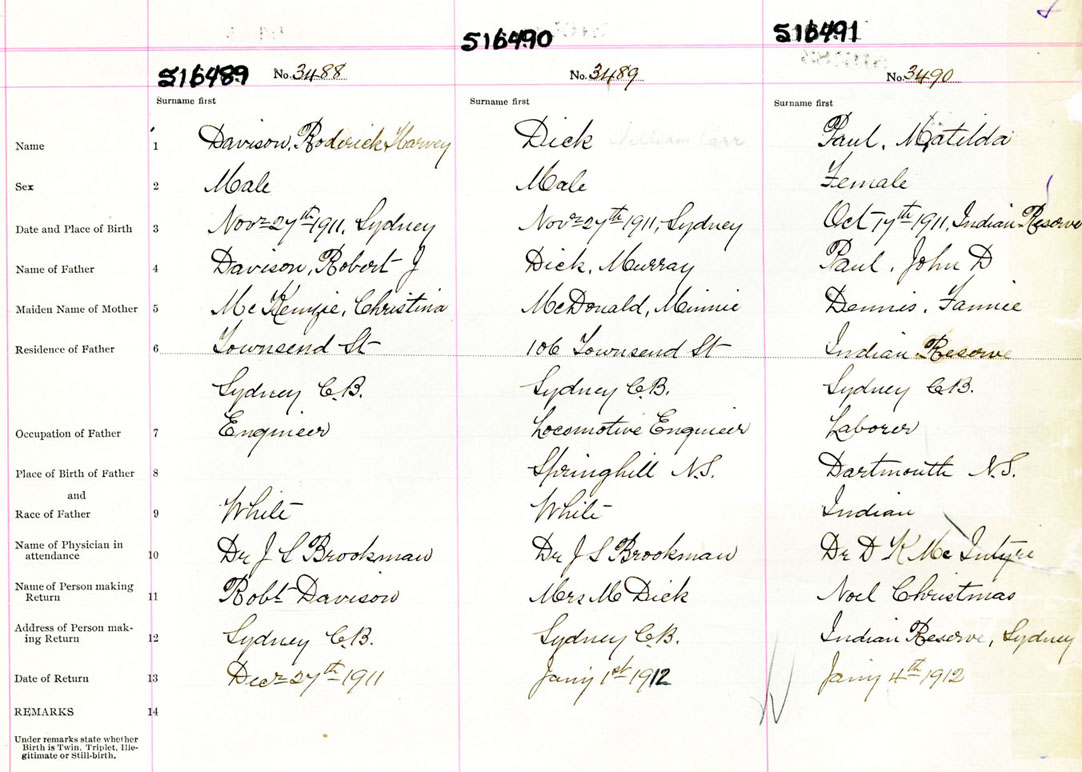 516489 516490 516491
No. 3488 No. 3489 No. 3490
Surname first Surname first Surname first
Name 1 Davison, Roderick Harvey Dick William Carr Paul, Matilda
Sex 2 Male Male Female
Date and Place of Birth 3 Novr 27th 1911, Sydney Novr 27th 1911, Sydney Oct 17th 1911, Indian Reserve
Name of Father 4 Davison, Robert J Dick, Murray Paul, John D
Maiden Name of Mother 5 McKenzie, Christina McDonald, Minnie Dennis, Fannie
Residence of Father 6 Townsend St 106 Townsend St Indian Reserve
Sydney C.B. Sydney C.B. Sydney C.B.
Occupation of Father 7 Engineer Locomotive Engineer Laborer
Place of Birth of Father 8 Springhill N.S. Dartmouth N.S.
and
Race of Father 9 White White Indian
Name of Physician in
attendance 10 Dr J S Brookman Dr J S Brookman Dr D K McIntyre
Name of Person making
Return 11 Robt Davison Mrs M Dick Noel Christmas
Address of Person mak-
ing Return 12 Sydney C.B. Sydney C.B. Indian Reserve, Sydney
Date of Return 13 Decr 27th 1911 Jany 1st 1912 Jany 4th 1912
REMARKS 14
Under remarks state whether
Birth is Twin, Triplet, Ille-
gitimate or Still-birth.